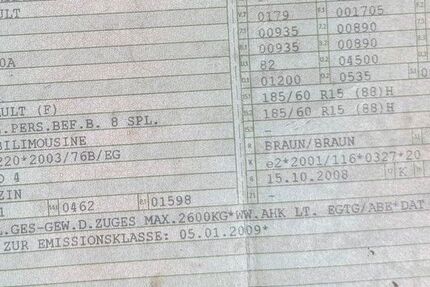 ULT
0179 001705
00935 00890
00935 00890
0A
82 04500
01200 0535
185/60 R15 (88)H
ULT (F) 185/60 R15 (88)H
.PERS.BEF.B. 8 SPL. –
BILIMOUSINE BRAUN/BRAUN
220*2003/76B/EG e2*2001/116*0327*20
D 4 15.10.2008 K
ZIN –
1 0462 01598
.GES-GEW.D.ZUGES MAX.2600KG*WW.AHK LT. EGTG/ABE*DAT
ZUR EMISSIONSKLASSE: 05.01.2009*